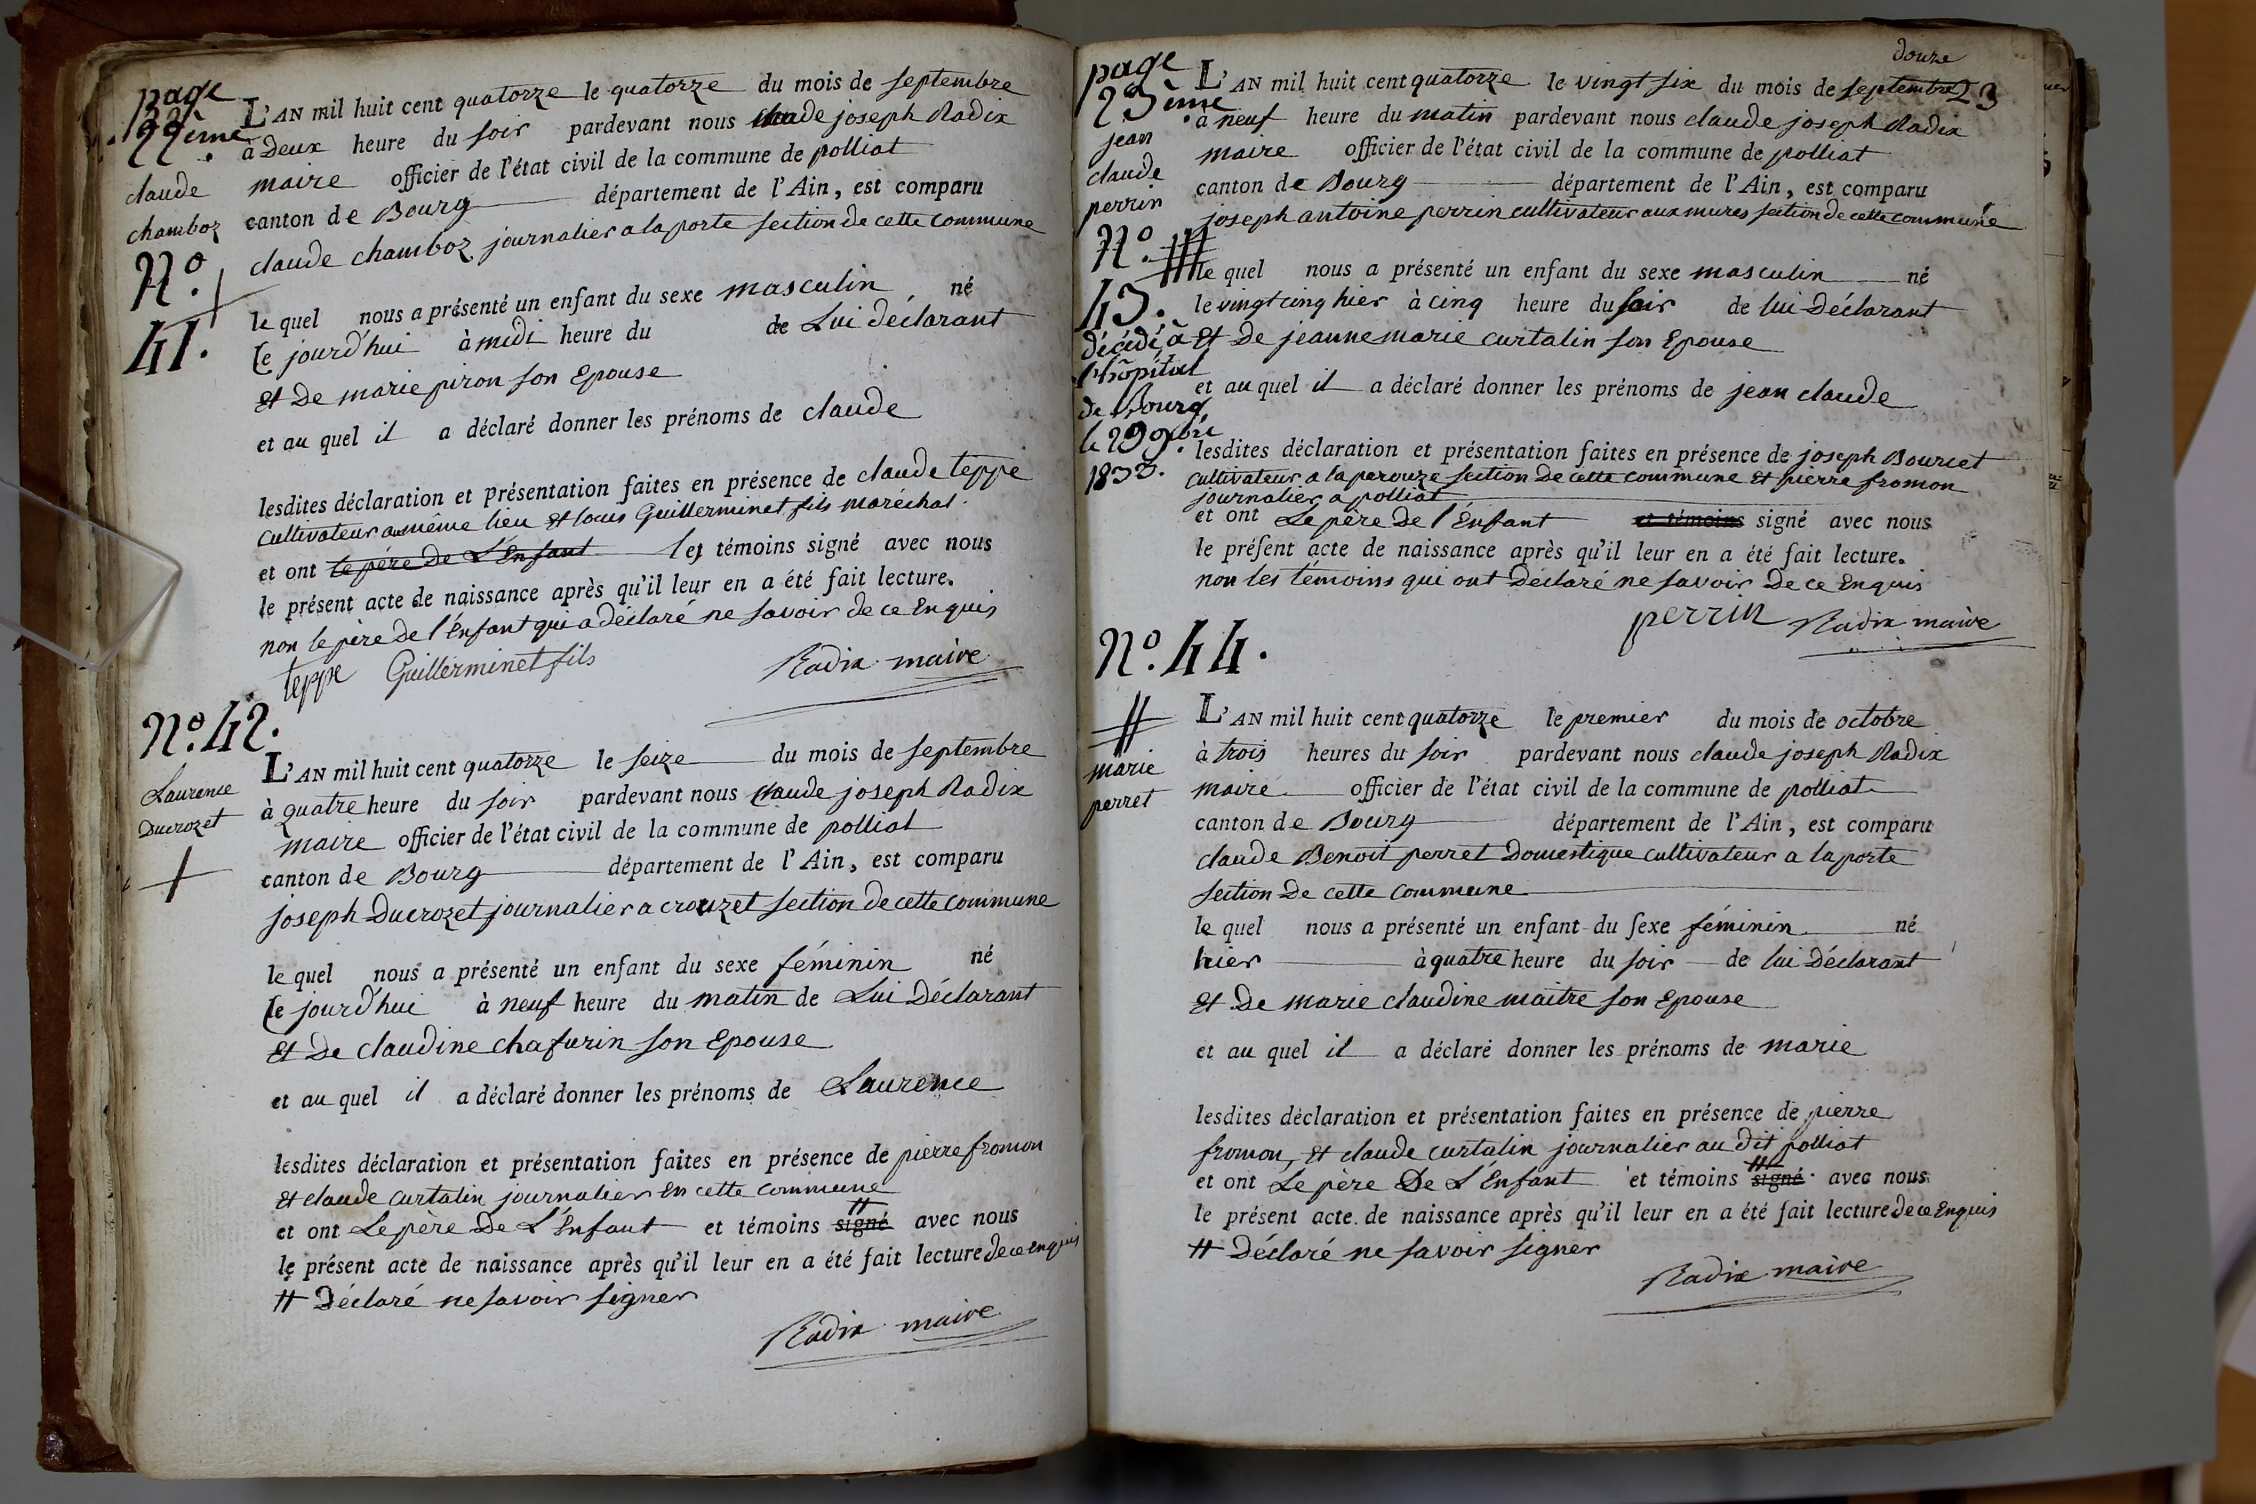 page
22ème.
claude
chamboz
N.º
41.
L'AN mil huit cent quatorze le quatorze du mois de septembre
à Deux heure du soir pardevant nous claude joseph Radix
maire officier de l'état civil de la commune de polliat
canton de Bourg département de l'Ain, est comparu
claude chamboz journalier a la porte section de cette commune
le quel nous a présenté un enfant du sexe masculin né
le jourd'hui à midi heure du de Lui déclarant
et De marie piron son Epouse
et au quel il a déclaré donner les prénoms de claude
lesdites déclaration et présentation faites en présence de claude teppe
cultivateur au même lieu et louis Guillerminet fils maréchal.
et ont le père de L'Enfant les témoins signé avec nous
le présent acte de naissance après qu'il leur en a été fait lecture.
non le père de l'Enfant qui a déclaré ne savoir de ce Enquis
teppe Guillerminet fils Radix maire
Nº. 42.
Laurence
Ducrozet
L'AN mil huit cent quatorze le seize du mois de septembre
à quatre heure du soir pardevant nous claude joseph Radix
maire officier de l'état civil de la commune de polliat
canton de Bourg département de l'Ain, est comparu
joseph Ducrozet journalier a crouzet section de cette commune
le quel nous a présenté un enfant du sexe féminin né
le jourd'hui à neuf heure du matin de Lui Déclarant
et De claudine chafurin son Epouse
et au quel il a déclaré donner les prénoms de Laurence
lesdites déclaration et présentation faites en présence de pierre fromon
et claude curtalin journalier En cette commune
et ont Le père De L'Enfant et témoins signé # avec nous
le présent acte de naissance après qu'il leur en a été fait lecture de ce enquis
# Déclaré ne savoir signer
Radix maire
douze
23
page
23ème.
jean
claude
perrin
N.º
43.
décédé, à
l'hôpital
de Bourg,
le 29 9bre
1833.
L'AN mil huit cent quatorze le vingt six du mois de septembre
à neuf heure du matin pardevant nous claude joseph Radix
maire officier de l'état civil de la commune de polliat
canton de Bourg département de l'Ain, est comparu
joseph antoine perrin cultivateur aux mures section de cette commune
le quel nous a présenté un enfant du sexe masculin né
le vingt cinq hier à cinq heure du soir de lui Déclarant
Et De jeanne marie curtalin son Epouse
et au quel il a déclaré donner les prénoms de jean claude
lesdites déclaration et présentation faites en présence de joseph Bourcet
cultivateur a la perouze section De cette commune Et pierre fromon
journalier a polliat
et ont Le père De l'Enfant et témoins signé avec nous
le présent acte de naissance après qu'il leur en a été fait lecture.
non les témoins qui ont Déclaré ne savoir De ce Enquis
perrin Radix maire
N.º 44.
marie
perret
L'AN mil huit cent quatorze le premier du mois de octobre
à trois heures du soir pardevant nous claude joseph Radix
maire officier de l'état civil de la commune de polliat
canton de Bourg département de l'Ain, est comparu
claude Benoit perret Domestique cultivateur a la porte
section De cette commune
le quel nous a présenté un enfant du sexe féminin né
hier à quatre heure du soir de lui Déclarant
Et De marie claudine maitre son Epouse
et au quel il a déclaré donner les prénoms de marie
lesdites déclaration et présentation faites en présence de pierre
fromon, Et claude curtalin journalier au dit polliat
et ont Le père De L'Enfant et témoins signé # avec nous
le présent acte de naissance après qu'il leur en a été fait lecture de ce Enquis
# Déclaré ne savoir signer
Radix maire